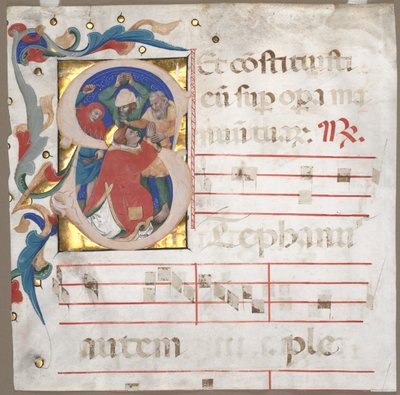 Et cōstituisti
eū sup opa ma
nuū tuaꝝ: ℟.
Stephanu
autem ple